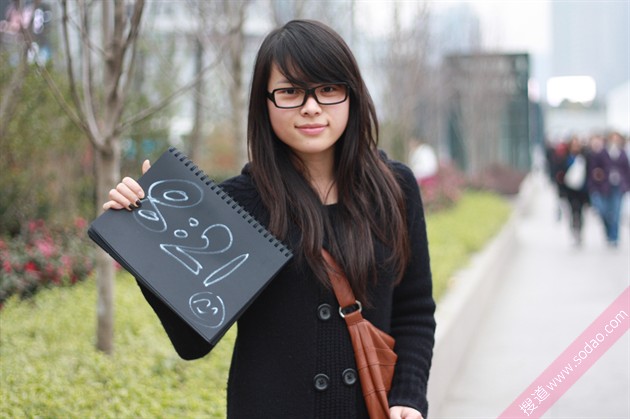 8:21
搜道 www.sodao.com